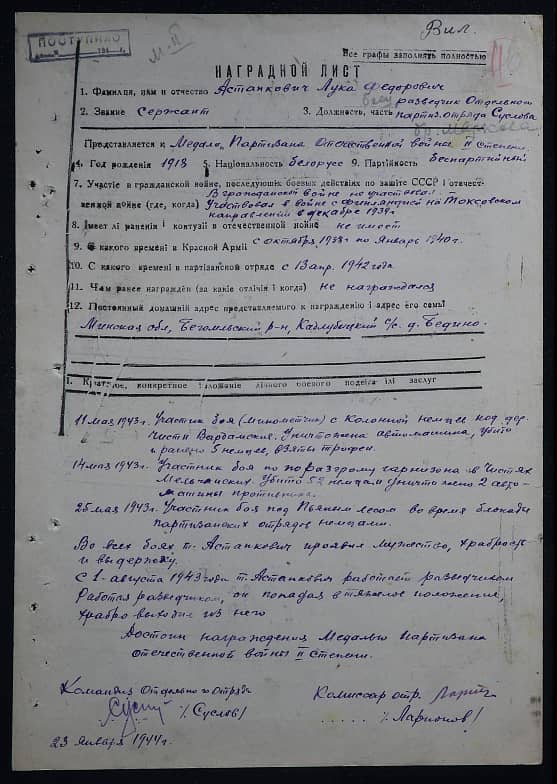 Вил.
ПОСТУПИЛО
Все графы заполнять полностью
НАГРАДНОЙ ЛИСТ
1. Фамилия, имя и отчество Астапкович Лука Федорович
2. Звание Сержант 3. Должность, часть разведчик Отдельного
партиз. отряда Суслова
Представляется к Медале „Партизана Отечественной войны II степени.
4. Год рождения 1918 5. Національность Белорус 9. Партійность Беспартийный
7. Участіе в гражданской войне, последующіх боевых действіях по защіте СССР і отечест-
В гражданской войне не участвовал.
венной войне (где, когда) Участвовал в войне с финляндией на Токсовском
направлении в декабре 1939г.
8. Імеет лі раненія і контузіі в отечественной войне не имеет
9. С какого времені в Красной Арміі с октября 1938г. по Январь 1940г.
10. С какого времені в партізанской отряде с 13 апр. 1942 года
11. Чем ранее награждён (за какіе отлічія і когда) не награждался
12. Постоянный домашній адрес представляемого к награжденію і адрес его семьі
Минская обл, Бегомльский р-н, Каблубицкий с/с. д. Бедино.
I. Краткое, конкретное ізложеніе лічного боевого подвіга ілі заслуг
11 мая 1943г. Участник боя (минометчик) с Колонной немцев под дер
Чисти Вардамские. Уничтожена автомашина, убито
и ранено 5 немцев, взяты трофеи.
14 мая 1943г. Участник боя по разгрому гарнизона в Чистях
Мельчанских. Убито 52 немца и уничтожено 2 авто-
машины противника.
25 мая 1943г. Участник боя под Пьяным лесом во время блокады
партизанских отрядов немцами.
Во всех боях т. Астапкович проявил мужество, храбрость
и выдержку.
С 1 августа 1943 года т. Астапкович работает разведчиком
Работая разведчиком, он попадал в тяжелое положение,
храбро выходил из него
Достоин награждения Медалью Партизана
отечественной войны II степени.
Командир Отдельного Отряда Комиссар отр.
/Суслов/ /Ларионов/
23 января 1944г.